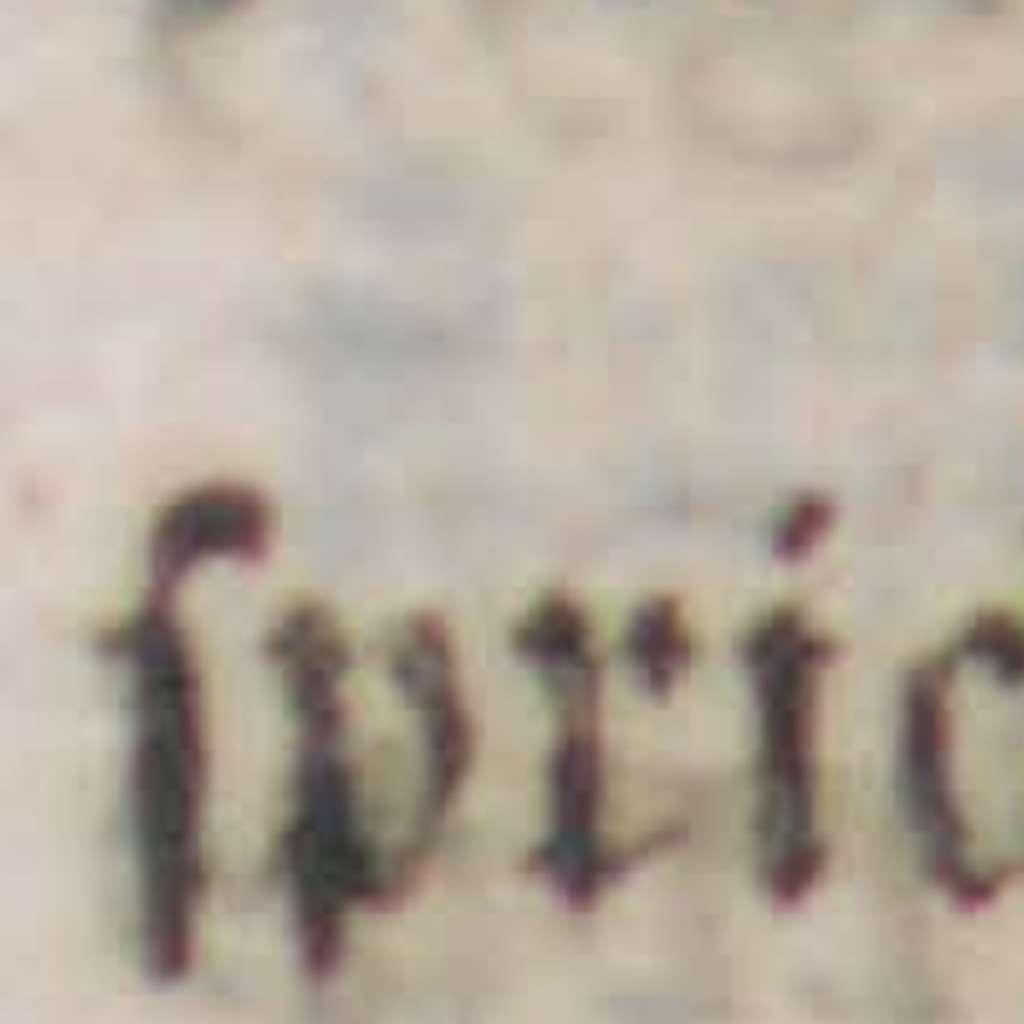 ſpric